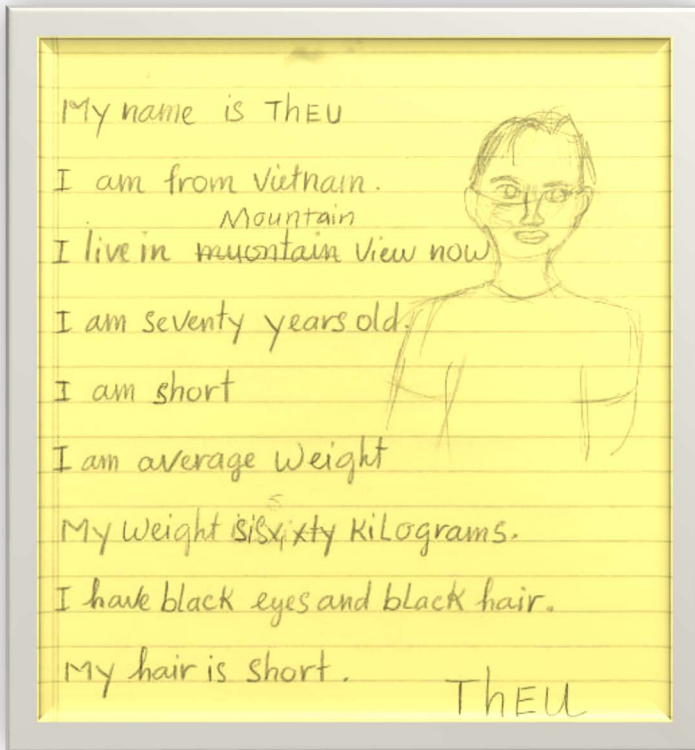 My name is ThEU
I am from Vietnam.
Mountain
I live in muontain View now
I am seventy years old.
I am short
I am average weight
My weight is sixty kilograms.
I have black eyes and black hair.
My hair is short.
ThEU